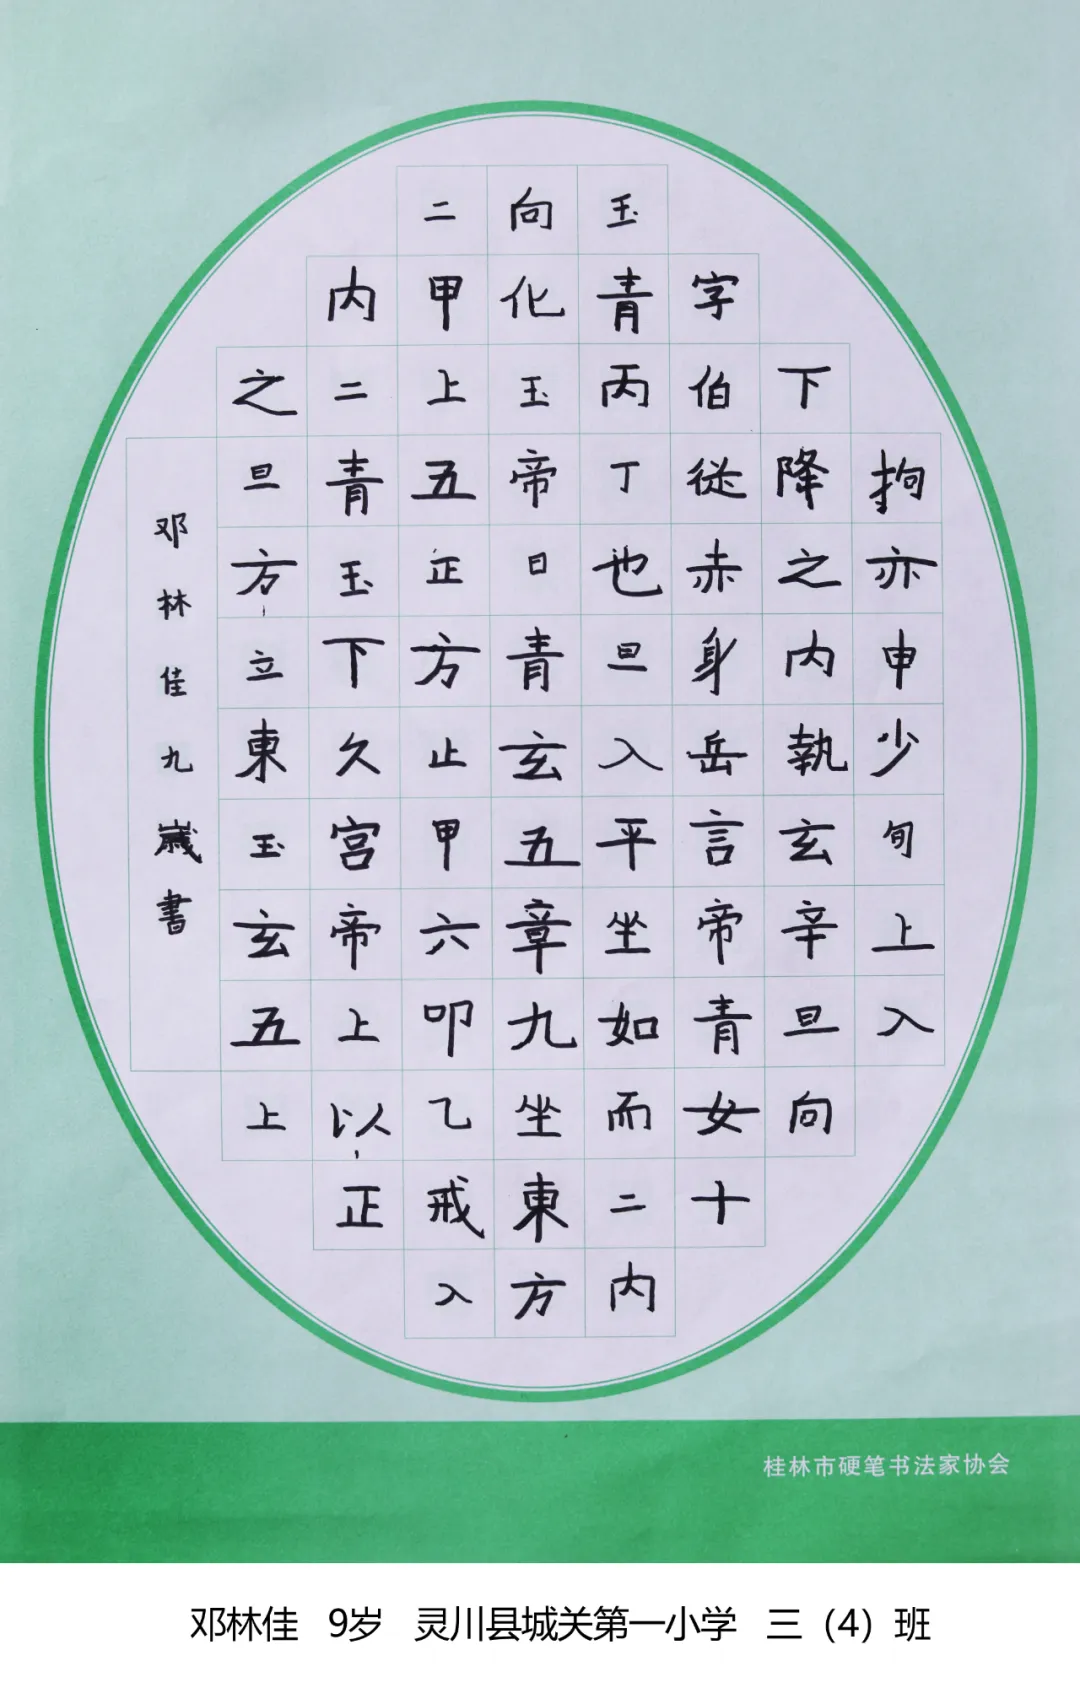 拘亦申少旬上入
下降之内執玄辛旦向
字伯従赤身岳言帝青女十
玉青丙丁也旦入平坐如而二内
向化玉帝日青玄五章九坐東方
二甲上五正方止甲六叩乙戒入
内二青玉下久宫帝上以正
之旦方立東玉玄五上
邓林佳九歲書
桂林市硬笔书法家协会
邓林佳 9岁 灵川县城关第一小学 三（4）班